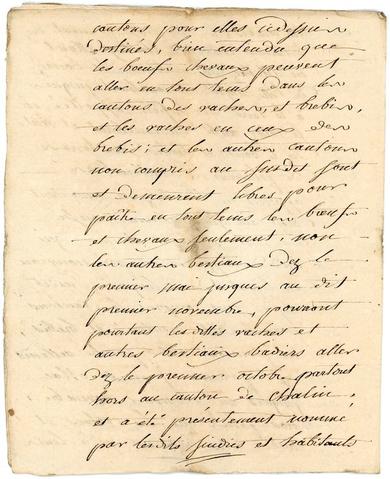 cantons pour elles cydessus
destinés, bien entendu que
les bœufs chevaux peuvent
aller en tous tems dans les
cantons des vaches, et brebis,
et les vaches en ceux des
brebis; et les autres cantons
non compris au susdes sont
et demeurent libres pour
paître en tout tems les bœufs
et chevaux seulement, non
les autres bestiaux Dez le
premier mai jusques au dit
premier novembre, pouvant
pourtant les dittes vaches et
autres bestiaux aller
dez le premier octobre partout
hors au canton de chalin,
et a été présentement nommé
par lesdits sindics et habitants